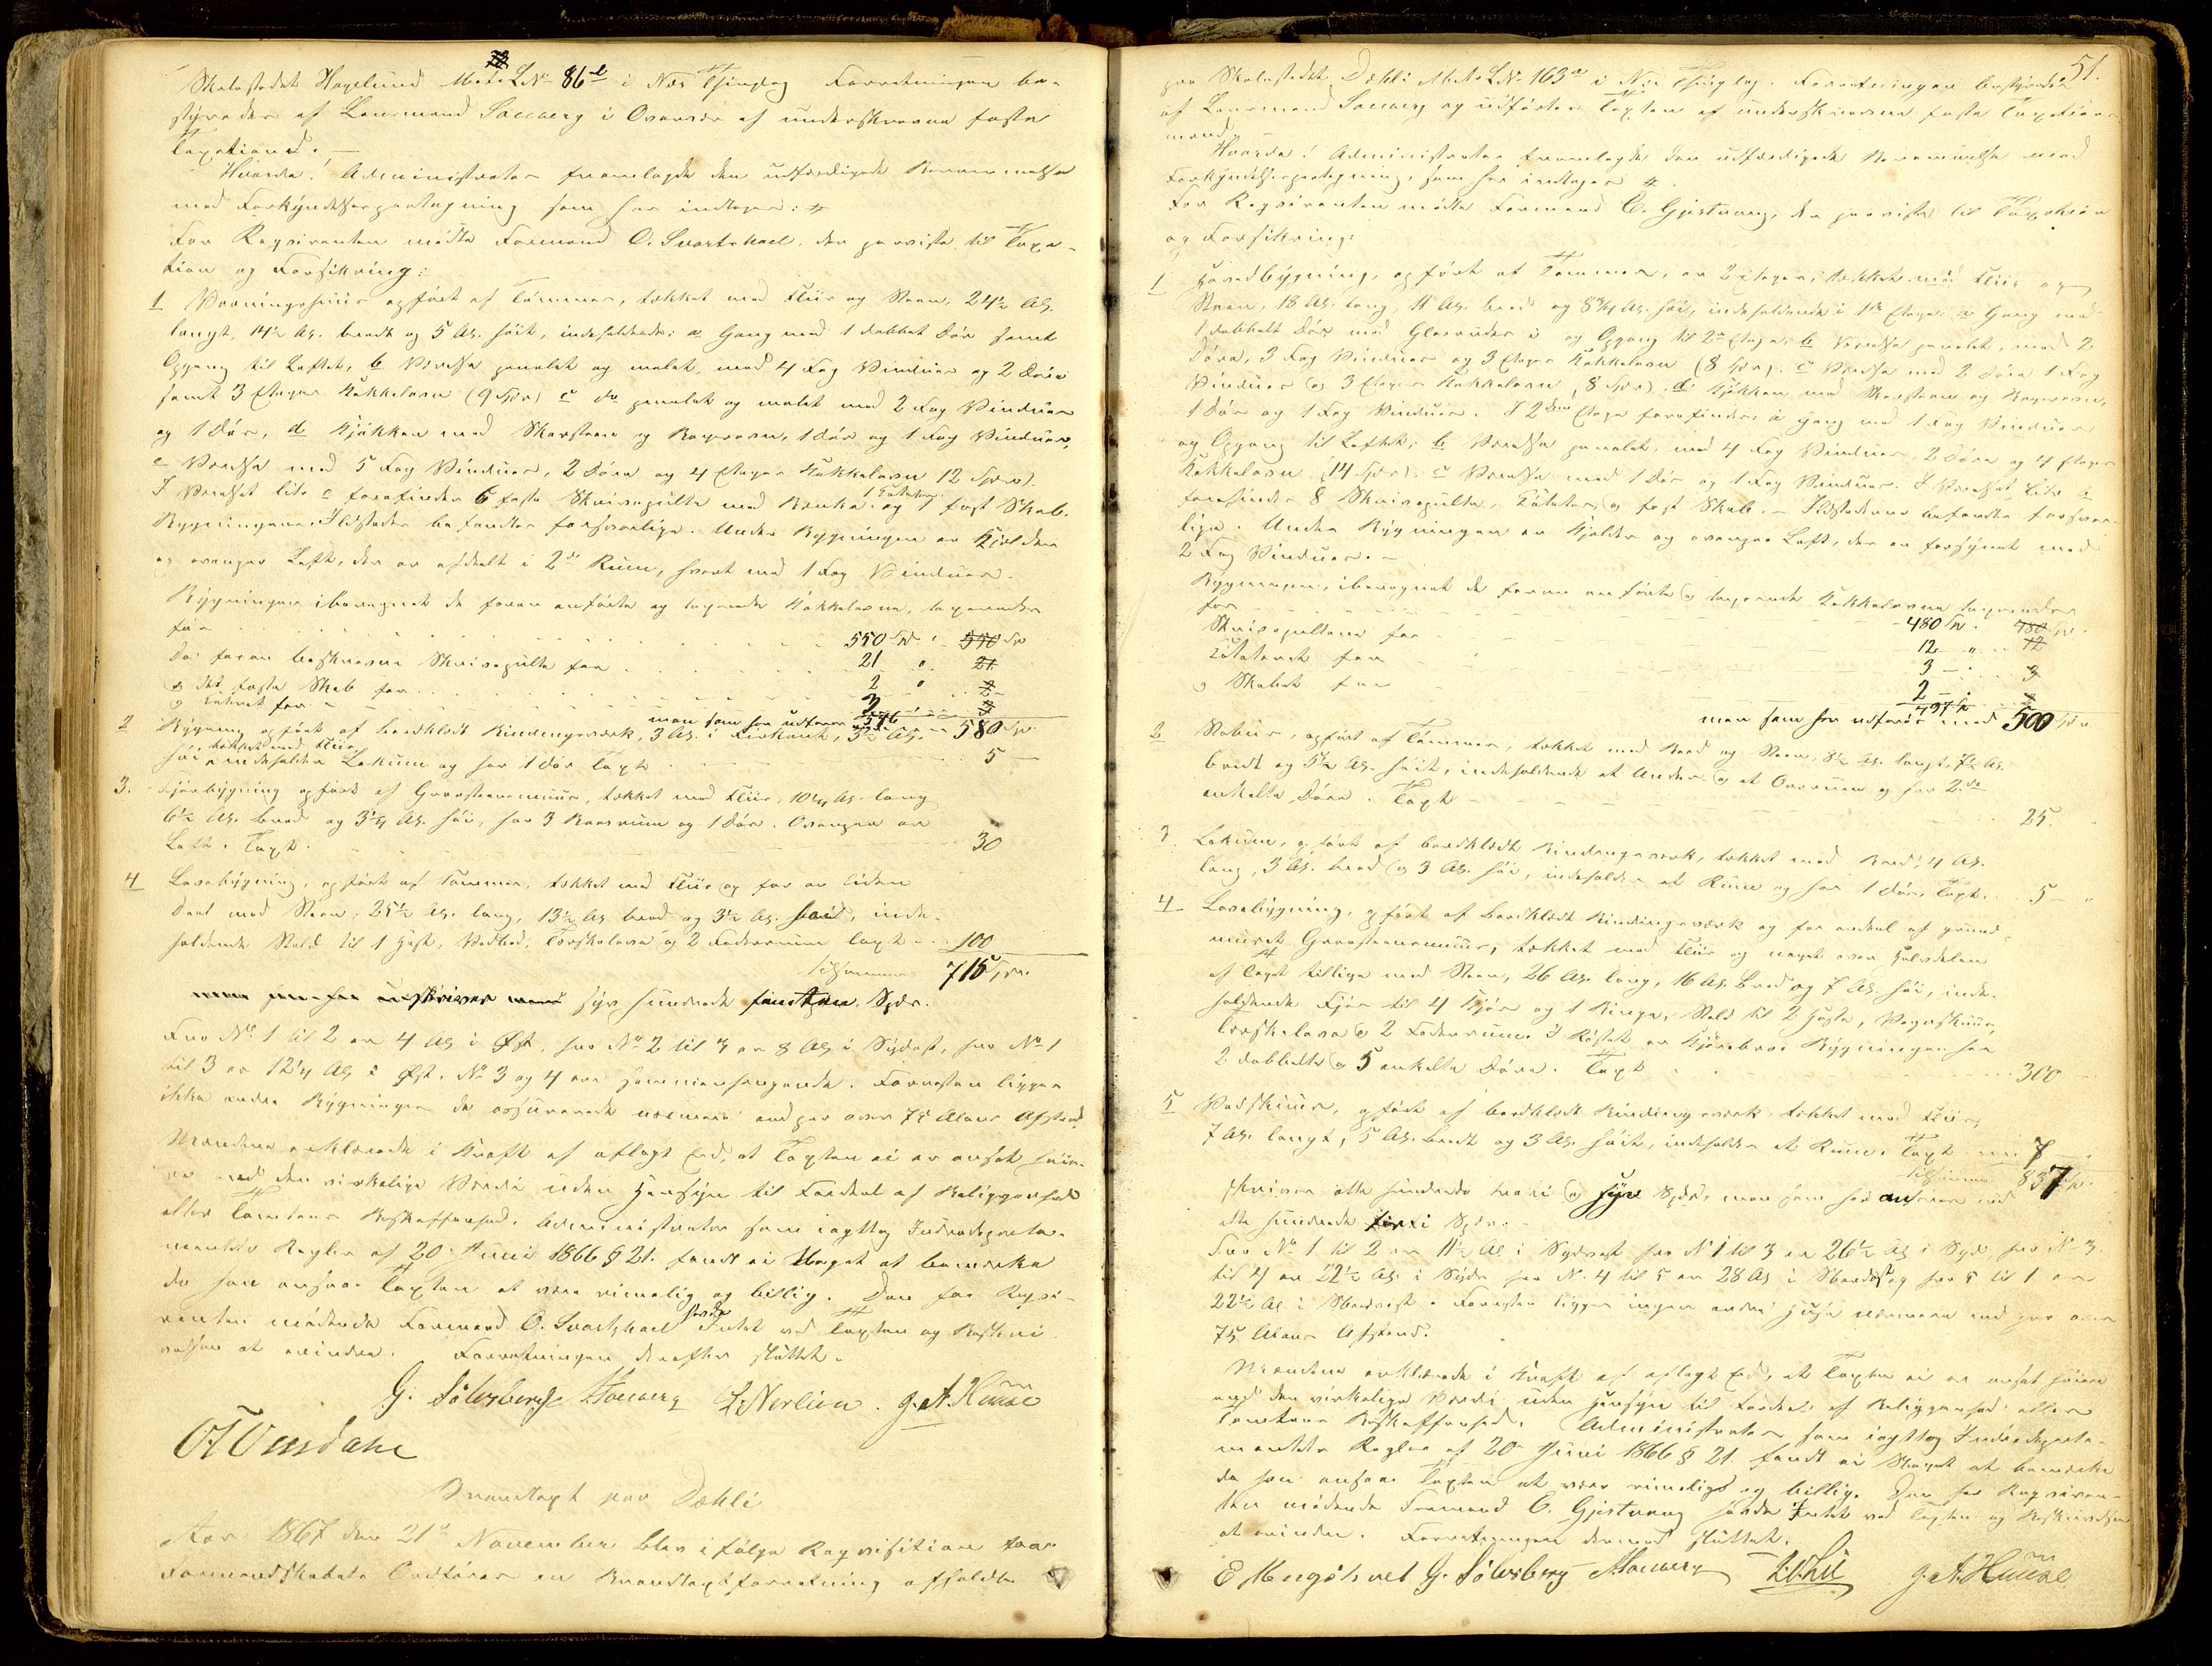 Skolestedet Hagelund Mat. L No 86 b i Næs Thinglag Forretningen be-
styredes af Lensmand Saxeberg i Overvær af underskrevne faste
Taxtmænd. —
Hvorda! Administrator fremlagde den udfærdigede Berammelse
med Forkyndelsespaategning som her indtages: #
For Reqvirenten mødte Formand O. Svartshael, der paaviste til Taxa-
tion og Forsikring:
1 Vaaningshuus opført af Tømmer, tækket med Fliis og Steen, 24½ Al.
langt, 14½ Al. bredt og 5 Al. høit, indeholdende: a Gang med 1 dobbelt Dør samt
Opgang til Loftet, b Værelse panelet og malet, med 4 Fag Vinduer og 2 Døre
samt 3 Etages Kakkelovn (9 Spd) c do panelet og malet med 2 Fag Vinduer
og 1 Dør, d Kjøkken med Skorsteen og Bagerovn, 1 Dør og 1 Fag Vinduer,
e Værelse med 5 Fag Vinduer, 2 Døre og 4 Etages Kakkelovn 12 Spd).
I Værelset litr e forefindes 6 faste Skrivepulte med Bænke, 1 Katheder og 1 fast Skab.
Bygningens Ildsteder befandtes forsvarlige. Under Bygningen er Kjelder
og ovenpaa Loft, der er afdelt i 2de Rum, hvert med 1 Fag Vinduer.
Bygningen iberegnet de foran anførte og taxerede Kakkelovne, taxeredes
for 550 Spd. 550 Spd
De foran beskrevne Skrivepulte for 21 " 21
og det faste Skab for 2 " 2
og Kathret for 3 3
men som her udføres med 576 580 Spd
2 Bygning opført af bordklædt Bindingsværk, 3 Al. i Firkant, 3½ Al.
høi, tækket med Fliis, indeholder Lokum og har 1 Dør Taxt 5 —
3. Fjøsbygning opført af Graasteensmuur, tækket med Fliis, 10¼ Al. lang
6½ Al. bred og 3¼ Al. høi, har 3 Baasrum og 1 Dør. Ovenpaa er
Loft. Taxt. 30
4 Lovebygning, opført af Tømmer, tækket med Fliis og for en liden
Deel med Steen, 25½ Al. lang, 13½ Al. bred og 3½ Al. høi, inde-
holdende Stald til 1 Hest, Vedbod, Tærskelove og 2 Foderrum taxt 100
Tilsammen 715 Spd.
syv hundrede femten Spdr.
Fra No 1 til 2 er 4 Al. i Øst, fra No 2 til 3 er 8 Al. i Sydøst, fra No 1
til 3 er 12¼ Al. i Øst. No 3 og 4 ere sammenhængende. Forresten ligger
ikke andre Bygninger de assurerede nærmere end paa over 75 Alens Afstand.
Mændene erklærede i Kraft af aflagt Eed, at Taxten ei er ansat høie-
re end den virkelige Værdi uden Hensyn til Fordeel af Beliggenhed
eller Tomtens Beskaffenhed. Administrator som iagttog Indredeparte-
mentets Regler af 20 Juni 1866 § 21. fandt ei Noget at bemærke
da han ansaae Taxten at være rimelig og billig. Den for Reqvi-
renten mødende Formand O. Svartshael havde Intet ved Taxten og Beskri-
velsen at erindre. Forretningen derefter sluttet.
G. Sølvsberg Saxeberg L. Nerlien. G. A. Huuse
Brandtaxt paa Dæhli
Aar 1867 den 21de November blev ifølge Reqvisition fra
Formandskabets Ordfører en Brandtaxtforretning afholdt
51.
paa Skolestedet Dæhli Mat. L No 163 a i Næs Thinglag. Forretningen bestyredes
af Lensmand Saxeberg og udførtes Taxten af underskrevne faste Taxations-
mænd. —
Hvorda! Administrator fremlagde den udfærdigede Berammelse med
Forkyndelsespaategning, som her indtages #.
For Reqvirenten mødte Formand C. Gjestvang, der paaviste til Taxation
og Forsikring:
1 Hovedbygning, opført af Tømmer, er 2 Etager, tækket med Fliis og
Steen, 18 Al. lang, 11 Al. bred og 8¾ Al. høi, indeholdende i 1ste Etage: a Gang med
1 dobbelt Dør med Glasruder i og Opgang til 2den Etage, b Værelse panelet, med 2
Døre, 3 Fag Vinduer og 3 Etages Kakkelovn (8 Spd). c Værelse med 2 Døre 1 Fag
Vinduer og 3 Etages Kakkelovn (8 Spd). d Kjøkken med Skorsteen og Bagerovn,
1 Dør og 1 Fag Vinduer. I 2den Etage forefindes: a Gang med 1 Fag Vinduer
og Opgang til Loftet; b Værelse panelet, med 4 Fag Vinduer, 2 Døre og 4 Etages
Kakkelovn (14 Spd). c Værelse med 1 Dør og 1 Fag Vinduer. I Værelset Litr b
forefindes 8 Skrivepulte, Katheter og fast Skab. — Ildstederne befandtes forsvar-
lige. Under Bygningen er Kjelder og ovenpaa Loft, der er forsynet med
2 Fag Vinduer. —
Bygningen, iberegnet de foran anførte og taxerede Kakkelovne taxeredes
for 480 Spd. 480 Spd.
Skrivepultene for 12 " 12
Katetret for 3 — 3
og Skabet for 2 — 2
497
men som her udføres med 500 Spd
2 Stabuur, opført af Tømmer, tækket med Bord og Steen, 8½ Al. langt, 7½ Al.
bredt og 5½ Al. høit, indeholdende et Under og et Overrum og har 2de
enkelte Døre. Taxt 25.
3. Lokum, opført af bordklædt Bindingsværk, tækket med Bord, 4 Al.
lang, 3 Al. bred og 3 Al. høi, indeholder et Rum og har 1 Dør, Taxt. 5 — "
4 Lovebygning, opført af bordklædt Bindingsværk og for endeel af grund-
muret Graasteensmuur, tækket med Fliis og noget over Halvdelen
af Taget tillige med Steen, 26 Al. lang, 16 Al. Bred og 7 Al. høi, inde-
holdende Fjøs til 4 Kjør og 1 Binge, Stald til 2 Heste, Vognskuur,
Tærskelove og 2 Foderrum. I Røstet er Kjørebro. Bygningen har
2 dobbelte og 5 enkelte Døre. Taxt 300 —
5 Vedskuur, opført af bordklædt Bindingsværk, tækket med Fliis,
7 Al. langt, 5 Al. bredt og 3 Al. høit, indeholder et Rum. Taxt 7
Tilsammen 837 Spd.
skriver otte hundrede tredi og syv Spdr, men som her ansees med
otte hundrede førti Spdr. —
Fra No 1 til 2 er 11½ Al. i Sydvest fra N 1 til 3 er 26½ Al. i Syd, fra No 3.
til 4 er 22½ Al. i Syd fra N. 4 til 5 er 28 Al. i Nordost og fra 5 til 1 er
22½ Al. i Nordvest. Forresten ligger ingen andre Huse nærmere end paa over
75 Alens Afstand.
Mændene erklærede i Kraft af aflagt Eed, at Taxten ei er ansat høiere
end den virkelige Værdi uden Hensyn til Fordeel af Beliggenhed eller
Tomtens Beskaffenhed. Administrator som iagttog Indredeparte-
mentets Regler af 20 Juni 1866 § 21. fandt ei Noget at bemærke
da han ansaae Taxten at være rimelig og billig. Den for Reqviren-
ten mødende Formand C. Gjestvang havde Intet ved Taxten og Beskrivelsen
at erindre. Forretningen dermed sluttet.
G. Sølvsberg Saxeberg G. A. Huuse